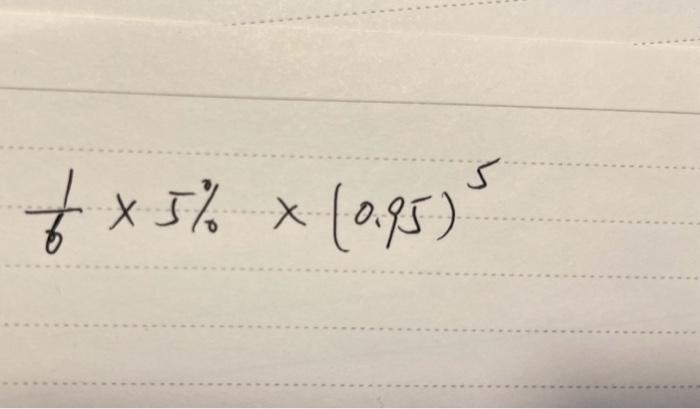 1/6 × 5% × (0.95)^5